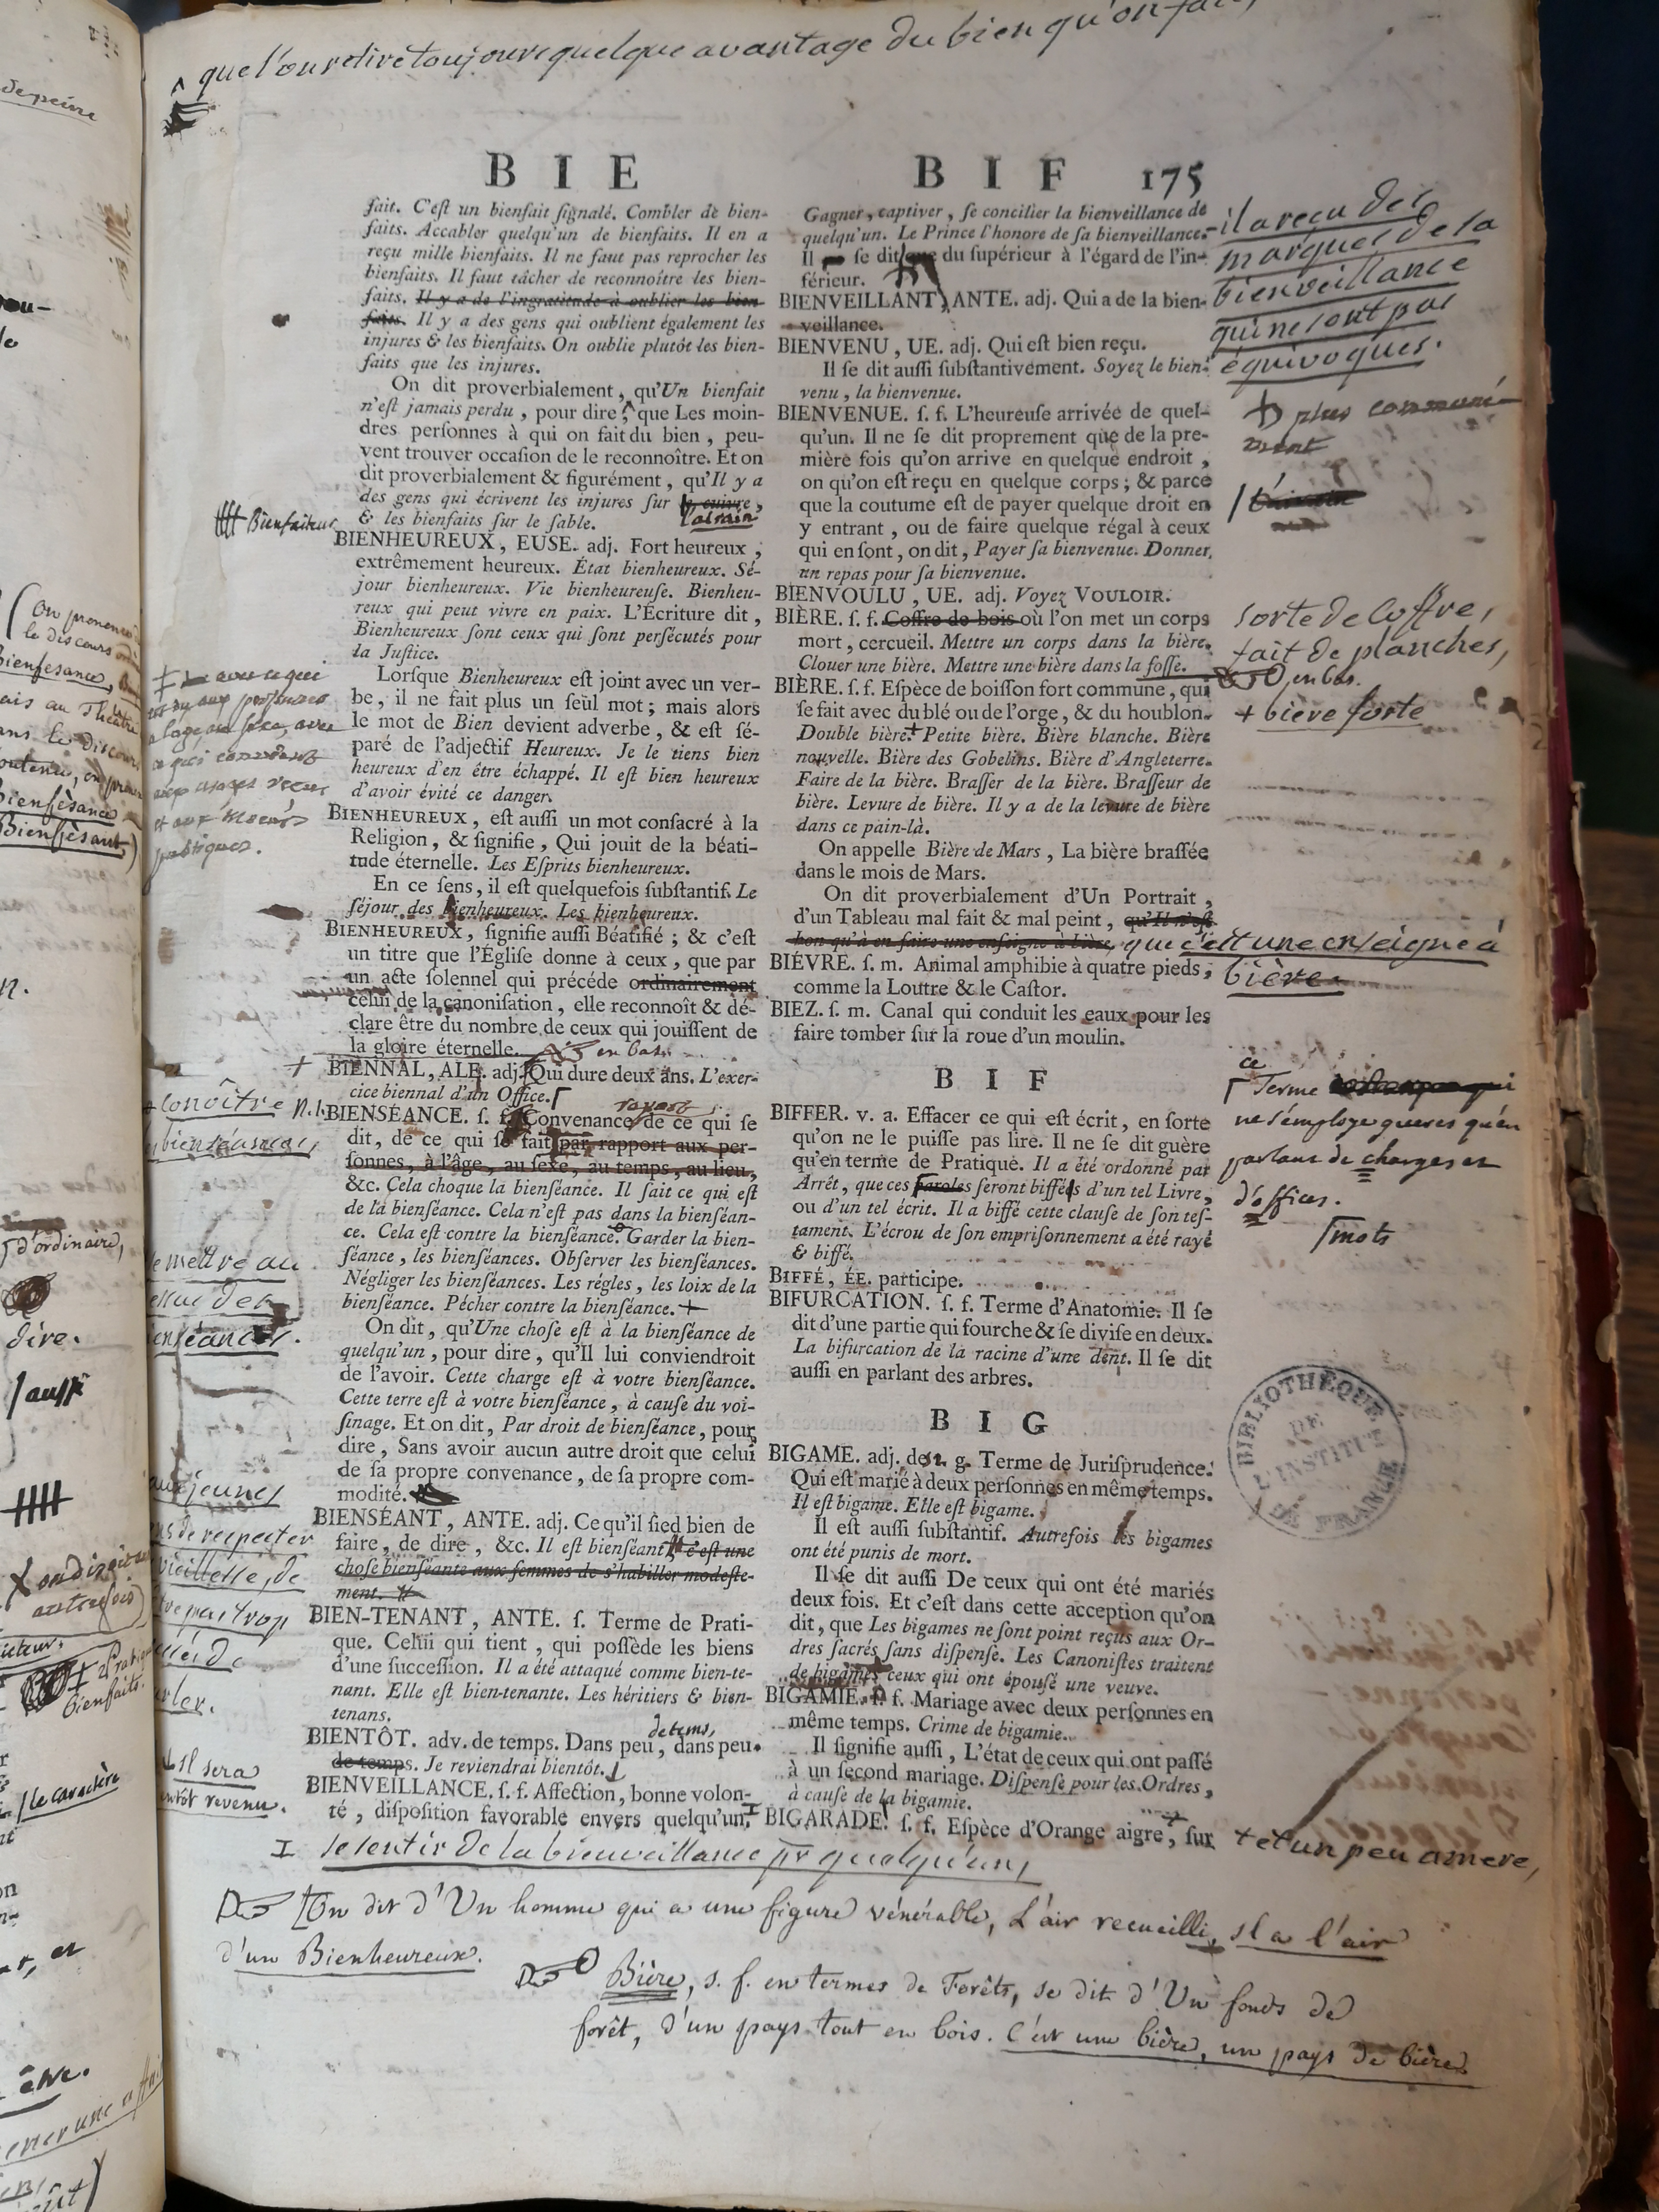 que l'on retire toujours quelque avantage du bien qu'on fait,
BIE
fait. C'eſt un bienfait ſignalé. Combler de bien-
faits. Accabler quelqu'un de bienfaits. Il en a
reçu mille bienfaits. Il ne faut pas reprocher les
bienfaits. Il faut tâcher de reconnoître les bien-
faits. Il y a de l'ingratitude à oublier les bien
faits. Il y a des gens qui oublient également les
injures & les bienfaits. On oublie plutôt les bien-
faits que les injures.
On dit proverbialement, qu'Un bienfait
n'eſt jamais perdu, pour dire, que Les moin-
dres perſonnes à qui on fait du bien, peu-
vent trouver occaſion de le reconnoître. Et on
dit proverbialement & figurément, qu'Il y a
des gens qui écrivent les injures ſur le cuivre,
l'airain
& les bienfaits ſur le ſable.
Bienfaiteur
BIENHEUREUX, EUSE. adj. Fort heureux,
extrêmement heureux. État bienheureux. Sé-
jour bienheureux. Vie bienheureuſe. Bienheu-
reux qui peut vivre en paix. L'Écriture dit,
Bienheureux ſont ceux qui ſont perſécutés pour
la Juſtice.
Lorſque Bienheureux eſt joint avec un ver-
be, il ne fait plus un ſeul mot; mais alors
le mot de Bien devient adverbe, & eſt ſé-
paré de l'adjectif Heureux. Je le tiens bien
heureux d'en être échappé. Il eſt bien heureux
d'avoir évité ce danger.
BIENHEUREUX, eſt auſſi un mot conſacré à la
Religion, & ſignifie, Qui jouit de la béati-
tude éternelle. Les Eſprits bienheureux.
En ce ſens, il eſt quelquefois ſubſtantif. Le
ſéjour des bienheureux. Les bienheureux.
BIENHEUREUX, ſignifie auſſi Béatifié; & c'eſt
un titre que l'Égliſe donne à ceux, que par
un acte ſolennel qui précéde ordinairement
celui de la canoniſation, elle reconnoît & dé-
clare être du nombre de ceux qui jouiſſent de
la gloire éternelle. en bas.
BIENNAL, ALE. adj. Qui dure deux ans. L'exer-
cice biennal d'un Office.
BIENSÉANCE. ſ. f. Convenance de ce qui ſe
dit, de ce qui ſe fait par rapport aux per-
ſonnes, à l'âge, au ſexe, au temps, au lieu,
&c. Cela choque la bienſéance. Il fait ce qui eſt
de la bienſéance. Cela n'eſt pas dans la bienſéan-
ce. Cela eſt contre la bienſéance. Garder la bien-
ſéance, les bienſéances. Obſerver les bienſéances.
Négliger les bienſéances. Les régles, les loix de la
bienſéance. Pécher contre la bienſéance. +
On dit, qu'Une choſe eſt à la bienſéance de
quelqu'un, pour dire, qu'Il lui conviendroit
de l'avoir. Cette charge eſt à votre bienſéance.
Cette terre eſt à votre bienſéance, à cauſe du voi-
ſinage. Et on dit, Par droit de bienſéance, pour
dire, Sans avoir aucun autre droit que celui
de ſa propre convenance, de ſa propre com-
modité.
BIENSÉANT, ANTE. adj. Ce qu'il ſied bien de
faire, de dire, &c. Il eſt bienſéant c'eſt une
choſe bienſéante aux femmes de s'habiller modeſte-
ment.
BIEN-TENANT, ANTE. ſ. Terme de Prati-
que. Celui qui tient, qui poſſède les biens
d'une ſucceſſion. Il a été attaqué comme bien-te-
nant. Elle eſt bien-tenante. Les héritiers & bien-
tenans.
de tems,
BIENTÔT. adv. de temps. Dans peu, dans peu
de temps. Je reviendrai bientôt.
BIENVEILLANCE. ſ. f. Affection, bonne volon-
té, diſpoſition favorable envers quelqu'un.
BIF 175
Gagner, captiver, ſe concilier la bienveillance de
quelqu'un. Le Prince l'honore de ſa bienveillance.
Il ſe dit que du ſupérieur à l'égard de l'in-
férieur.
BIENVEILLANT, ANTE. adj. Qui a de la bien-
veillance.
BIENVENU, UE. adj. Qui eſt bien reçu.
Il ſe dit auſſi ſubſtantivement. Soyez le bien-
venu, la bienvenue.
BIENVENUE. ſ. f. L'heureuſe arrivée de quel-
qu'un. Il ne ſe dit proprement que de la pre-
mière fois qu'on arrive en quelque endroit,
on qu'on eſt reçu en quelque corps; & parce
que la coutume eſt de payer quelque droit en
y entrant, ou de faire quelque régal à ceux
qui en ſont, on dit, Payer ſa bienvenue. Donner
un repas pour ſa bienvenue.
BIENVOULU, UE. adj. Voyez VOULOIR.
BIÈRE. ſ. f. Coffre de bois où l'on met un corps
mort, cercueil. Mettre un corps dans la bière.
Clouer une bière. Mettre une bière dans la foſſe.
BIÈRE. ſ. f. Eſpèce de boiſſon fort commune, qui
ſe fait avec du blé ou de l'orge, & du houblon.
Double bière.+ Petite bière. Bière blanche. Bière
nouvelle. Bière des Gobelins. Bière d'Angleterre.
Faire de la bière. Braſſer de la bière. Braſſeur de
bière. Levure de bière. Il y a de la levure de bière
dans ce pain-là.
On appelle Bière de Mars, La bière braſſée
dans le mois de Mars.
On dit proverbialement d'Un Portrait,
d'un Tableau mal fait & mal peint, qu'Il n'eſt
bon qu'à en faire une enſeigne à bière, que c'est une enseigne à
bière
BIÉVRE. ſ. m. Animal amphibie à quatre pieds,
comme la Loutre & le Caſtor.
BIEZ. ſ. m. Canal qui conduit les eaux pour les
faire tomber ſur la roue d'un moulin.
BIF
BIFFER. v. a. Effacer ce qui eſt écrit, en ſorte
qu'on ne le puiſſe pas lire. Il ne ſe dit guère
qu'en terme de Pratique. Il a été ordonné par
Arrêt, que ces paroles ſeront biffées d'un tel Livre,
ou d'un tel écrit. Il a biffé cette clauſe de ſon teſ-
tament. L'écrou de ſon empriſonnement a été rayé
& biffé.
BIFFÉ, ÉE. participe.
BIFURCATION. ſ. f. Terme d'Anatomie. Il ſe
dit d'une partie qui fourche & ſe diviſe en deux.
La bifurcation de la racine d'une dent. Il ſe dit
auſſi en parlant des arbres.
BIG
BIGAME. adj. de t. g. Terme de Juriſprudence.
Qui eſt marié à deux perſonnes en même temps.
Il eſt bigame. Elle eſt bigame.
Il eſt auſſi ſubſtantif. Autrefois les bigames
ont été punis de mort.
Il ſe dit auſſi De ceux qui ont été mariés
deux fois. Et c'eſt dans cette acception qu'on
dit, que Les bigames ne ſont point reçus aux Or-
dres ſacrés ſans diſpenſe. Les Canoniſtes traitent
de bigames ceux qui ont épouſé une veuve.
BIGAMIE. ſ. f. Mariage avec deux perſonnes en
même temps. Crime de bigamie.
Il ſignifie auſſi, L'état de ceux qui ont paſſé
à un ſecond mariage. Diſpenſe pour les Ordres,
à cauſe de la bigamie.
BIGARADE. ſ. f. Eſpèce d'Orange aigre, ſur
il a reçu des
marques de la
bienveillance
qui ne sont pas
équivoques.
plus communé-
ment
sorte de Coffre,
fait de planches,
en bas.
+ bière forte
ce
Terme
ne s'employe gueres qu'en
parlant de charges et
d'offices.
mots
BIBLIOTHÈQUE
DE
L'INSTITUT
DE FRANCE
+ et un peu amere,
+ conoître
bienséances,
mettre au
enséances.
aux jeunes
de respecter
vieillesse, de
trop
Il sera
revenu.
I se sentir de la bienveillance pr quelqu'un,
On dit d'Un homme qui a une figure vénérable, L'air recueilli, Il a l'air
d'un Bienheureux.
Bière, s. f. en termes de Forêts, se dit d'Un fonds de
forêt, d'un pays tout en bois. C'est une bière, un pays de bière
de peine
On prononce
le discours
bienfesance,
ais au Théâtre
Bienfèsance
Bienfèsant)
d'ordinaire,
dire.
/ aussi
on diroit
autrefois)
bienfaits.
/ le caractère